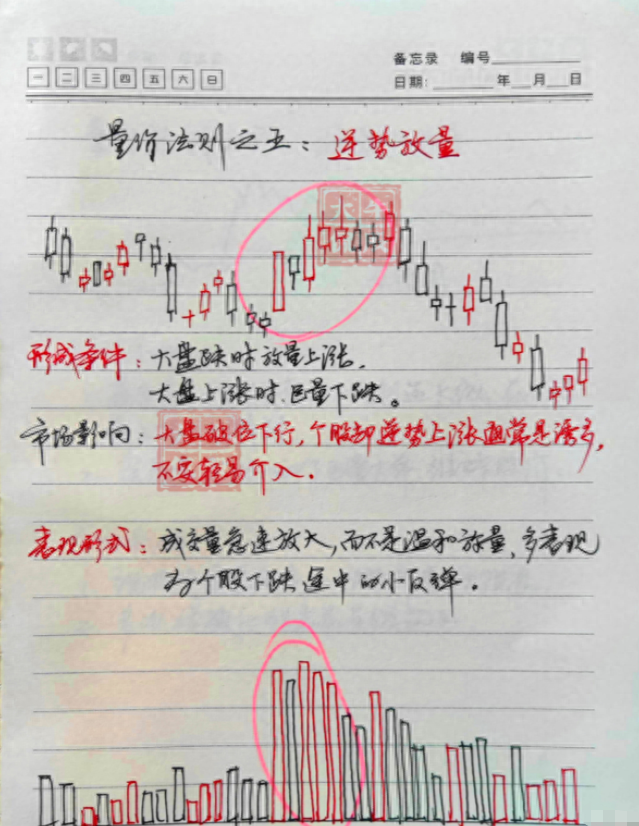 备忘录 编号
一 二 三 四 五 六 日
日期: 年 月 日
量价法则之五：逆势放量
形成条件：大盘跌时放量上涨，
大盘上涨时，巨量下跌。
市场影响：大盘破位下行，个股却逆势上涨通常是诱多，
不要轻易介入.
表现形式：成交量急速放大，而不是温和放量，多表现
为个股下跌途中的小反弹。